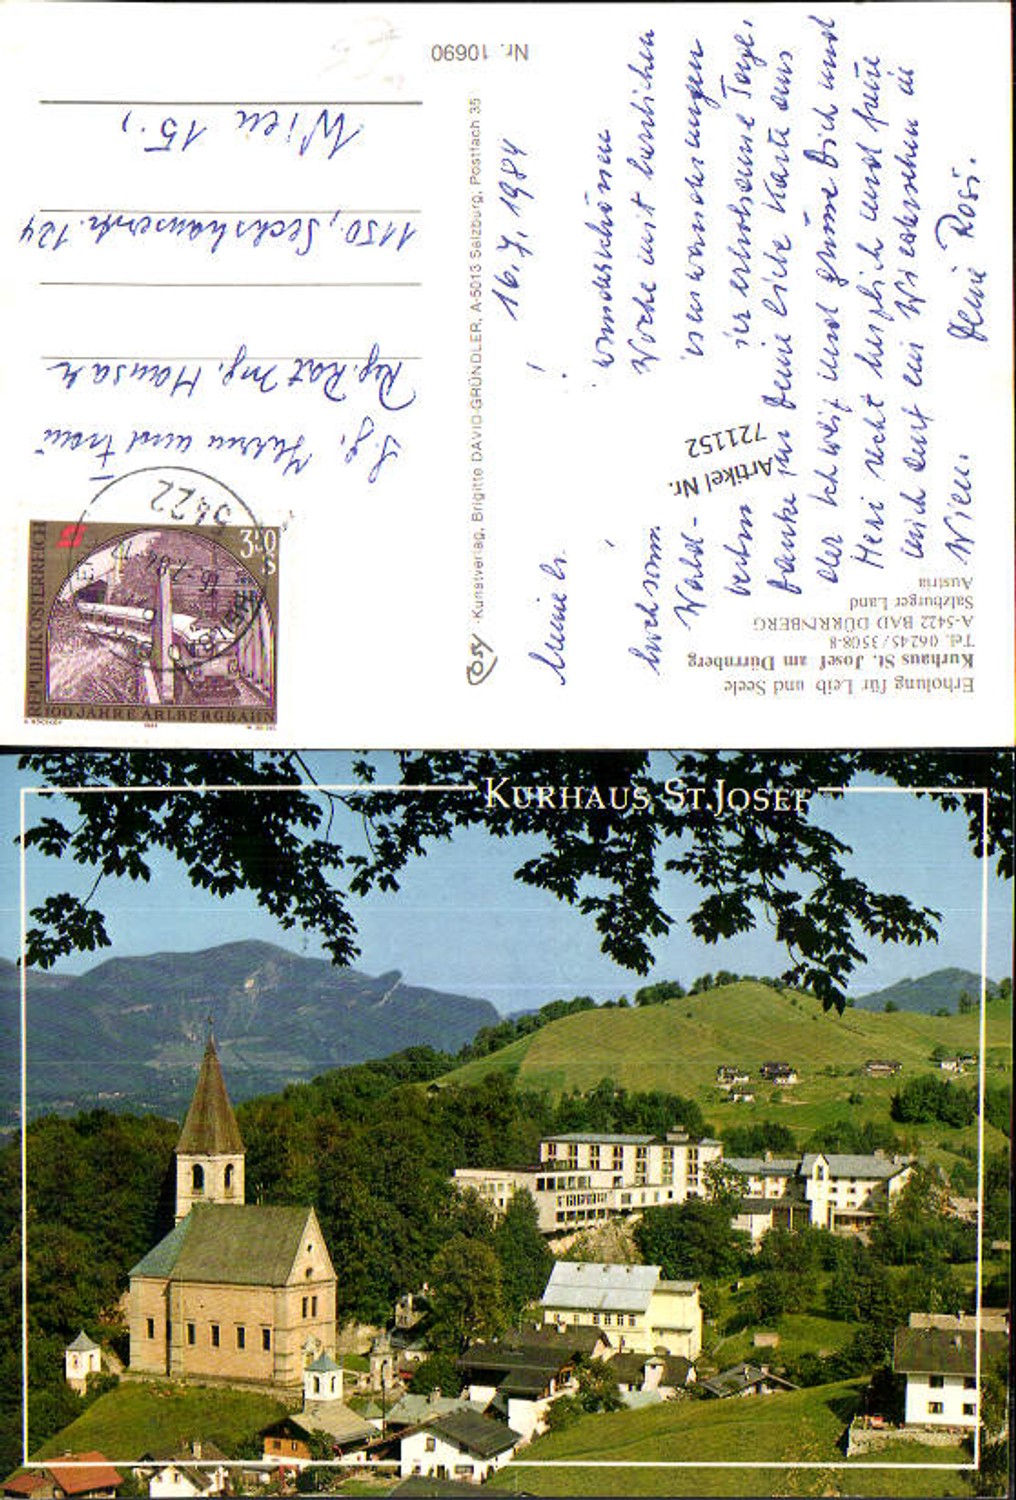 Nr. 10690
Erholung für Leib und Seele
Kurhaus St. Josef am Dürrnberg
Tel. 06245/3508-8
A-5422 BAD DÜRRNBERG
Salzburger Land
Austria
Artikel Nr.
721152
Cosy
Kunstverlag, Brigitte DAVID-GRÜNDLER, A-5013 Salzburg, Postfach 35
16.7.1984
wunderschönen
Woche mit herrlichen
Wald-
wanderungen
erholsame Tage.
Danke für Deine liebe Karte aus
der Schweiz und grüsse Dich und
recht herzlich und freue
mich auf ein Wiedersehen in
Wien.
Deine Rosi.
REPUBLIK ÖSTERREICH
3.50
S
100 JAHRE ARLBERGBAHN
5422
Herrn und Frau
Reg. Rat Ing.
1150, Sechshauserstr. 124
Wien 15.,
KURHAUS ST.JOSEF